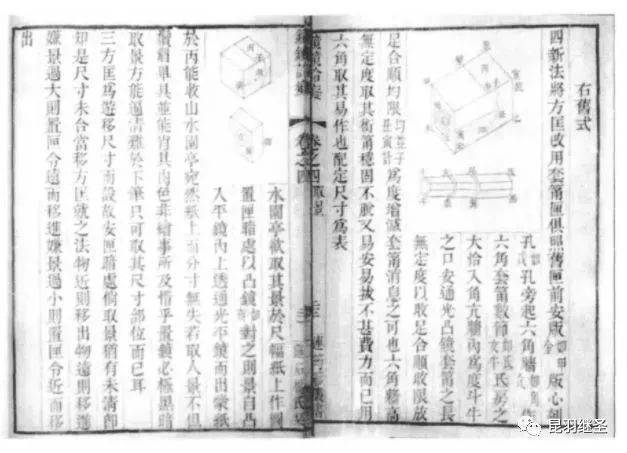 右舊式
四新法將方匡改用套筩匣俱照舊匣前安版 版心剜
孔 孔旁起六角牆
六角套筩數節 氐房之
大恰入角亢牆內為度斗牛
之口安通光凸鏡套筩之長
無定度以取足合順收限放
足合順均限 為度增減套筩消息之可也六角牆高
無定度取其銜筩穩固不脫又易安易拔不甚費力而已用
六角取其易作也配定尺寸為表
卷之四
水園亭欲取其景於尺幅紙上作圖
置匣暗處以凸鏡 對之則景自凸
入平鏡內上透通光平鏡而出蒙紙
於丙能收山水園亭宛然紙上而分寸無失若取人景不但
鬚眉畢具並能肖其肉色非繪事所及惜乎置鏡必極黑暗
取景方能逼清難於下筆只可取其尺寸部位而已耳
三方匡為遊移尺寸而設故安匣暗處倘取景猶有未清卽
却是尺寸未合當移方匡就之法物近則移出物遠則移進
嫌景過大則置匣令遠而移進嫌景過小則置匣令近而移
出
昆羽继圣